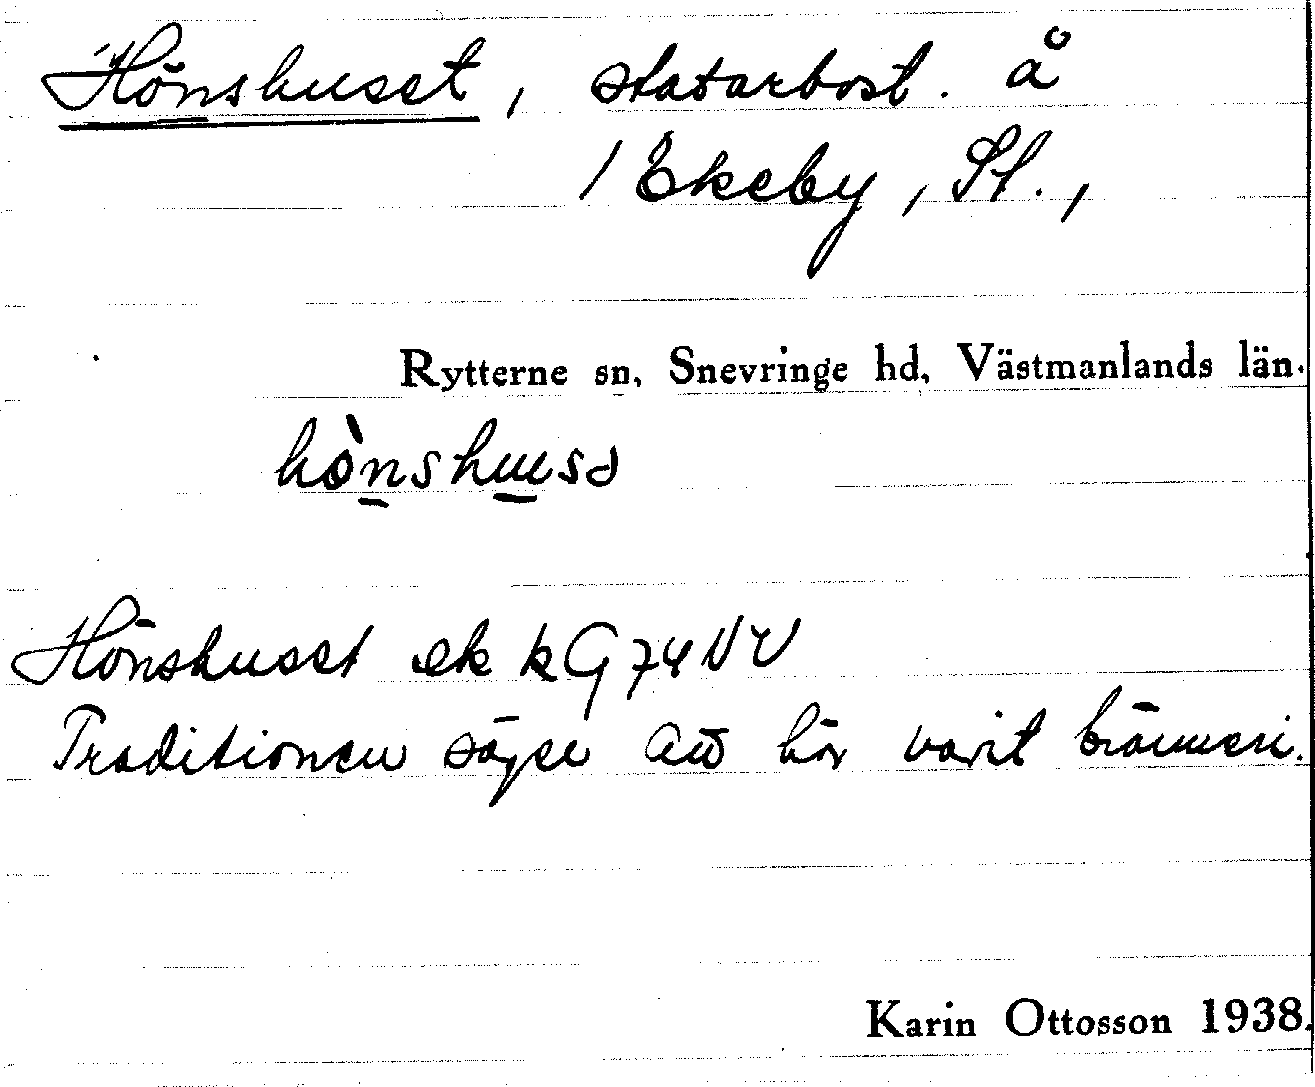 Hönshuset, statarbost. å
/ Ekeby, St.,
Rytterne sn, Snevringe hd, Västmanlands län.
Hönshuset ek k G 74 NV
Traditionen säger att här varit bränneri.
Karin Ottosson 1938.